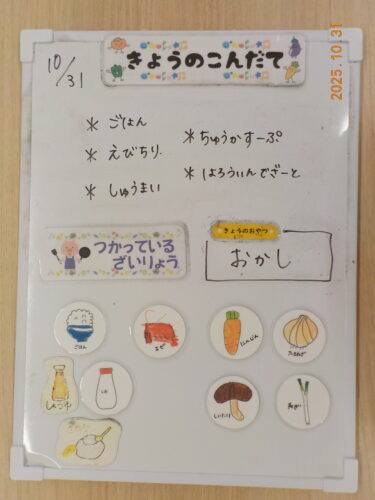 2025.10.31
10/31
きょうのこんだて
* ごはん
* えびちり
* しゅうまい
* ちゅうかすーぷ
* はろうぃんでざーと
つかっている
ざいりょう
きょうのおやつ
おかし
ごはん
えび
にんじん
たまねぎ
しょうゆ
しお
しいたけ
ねぎ